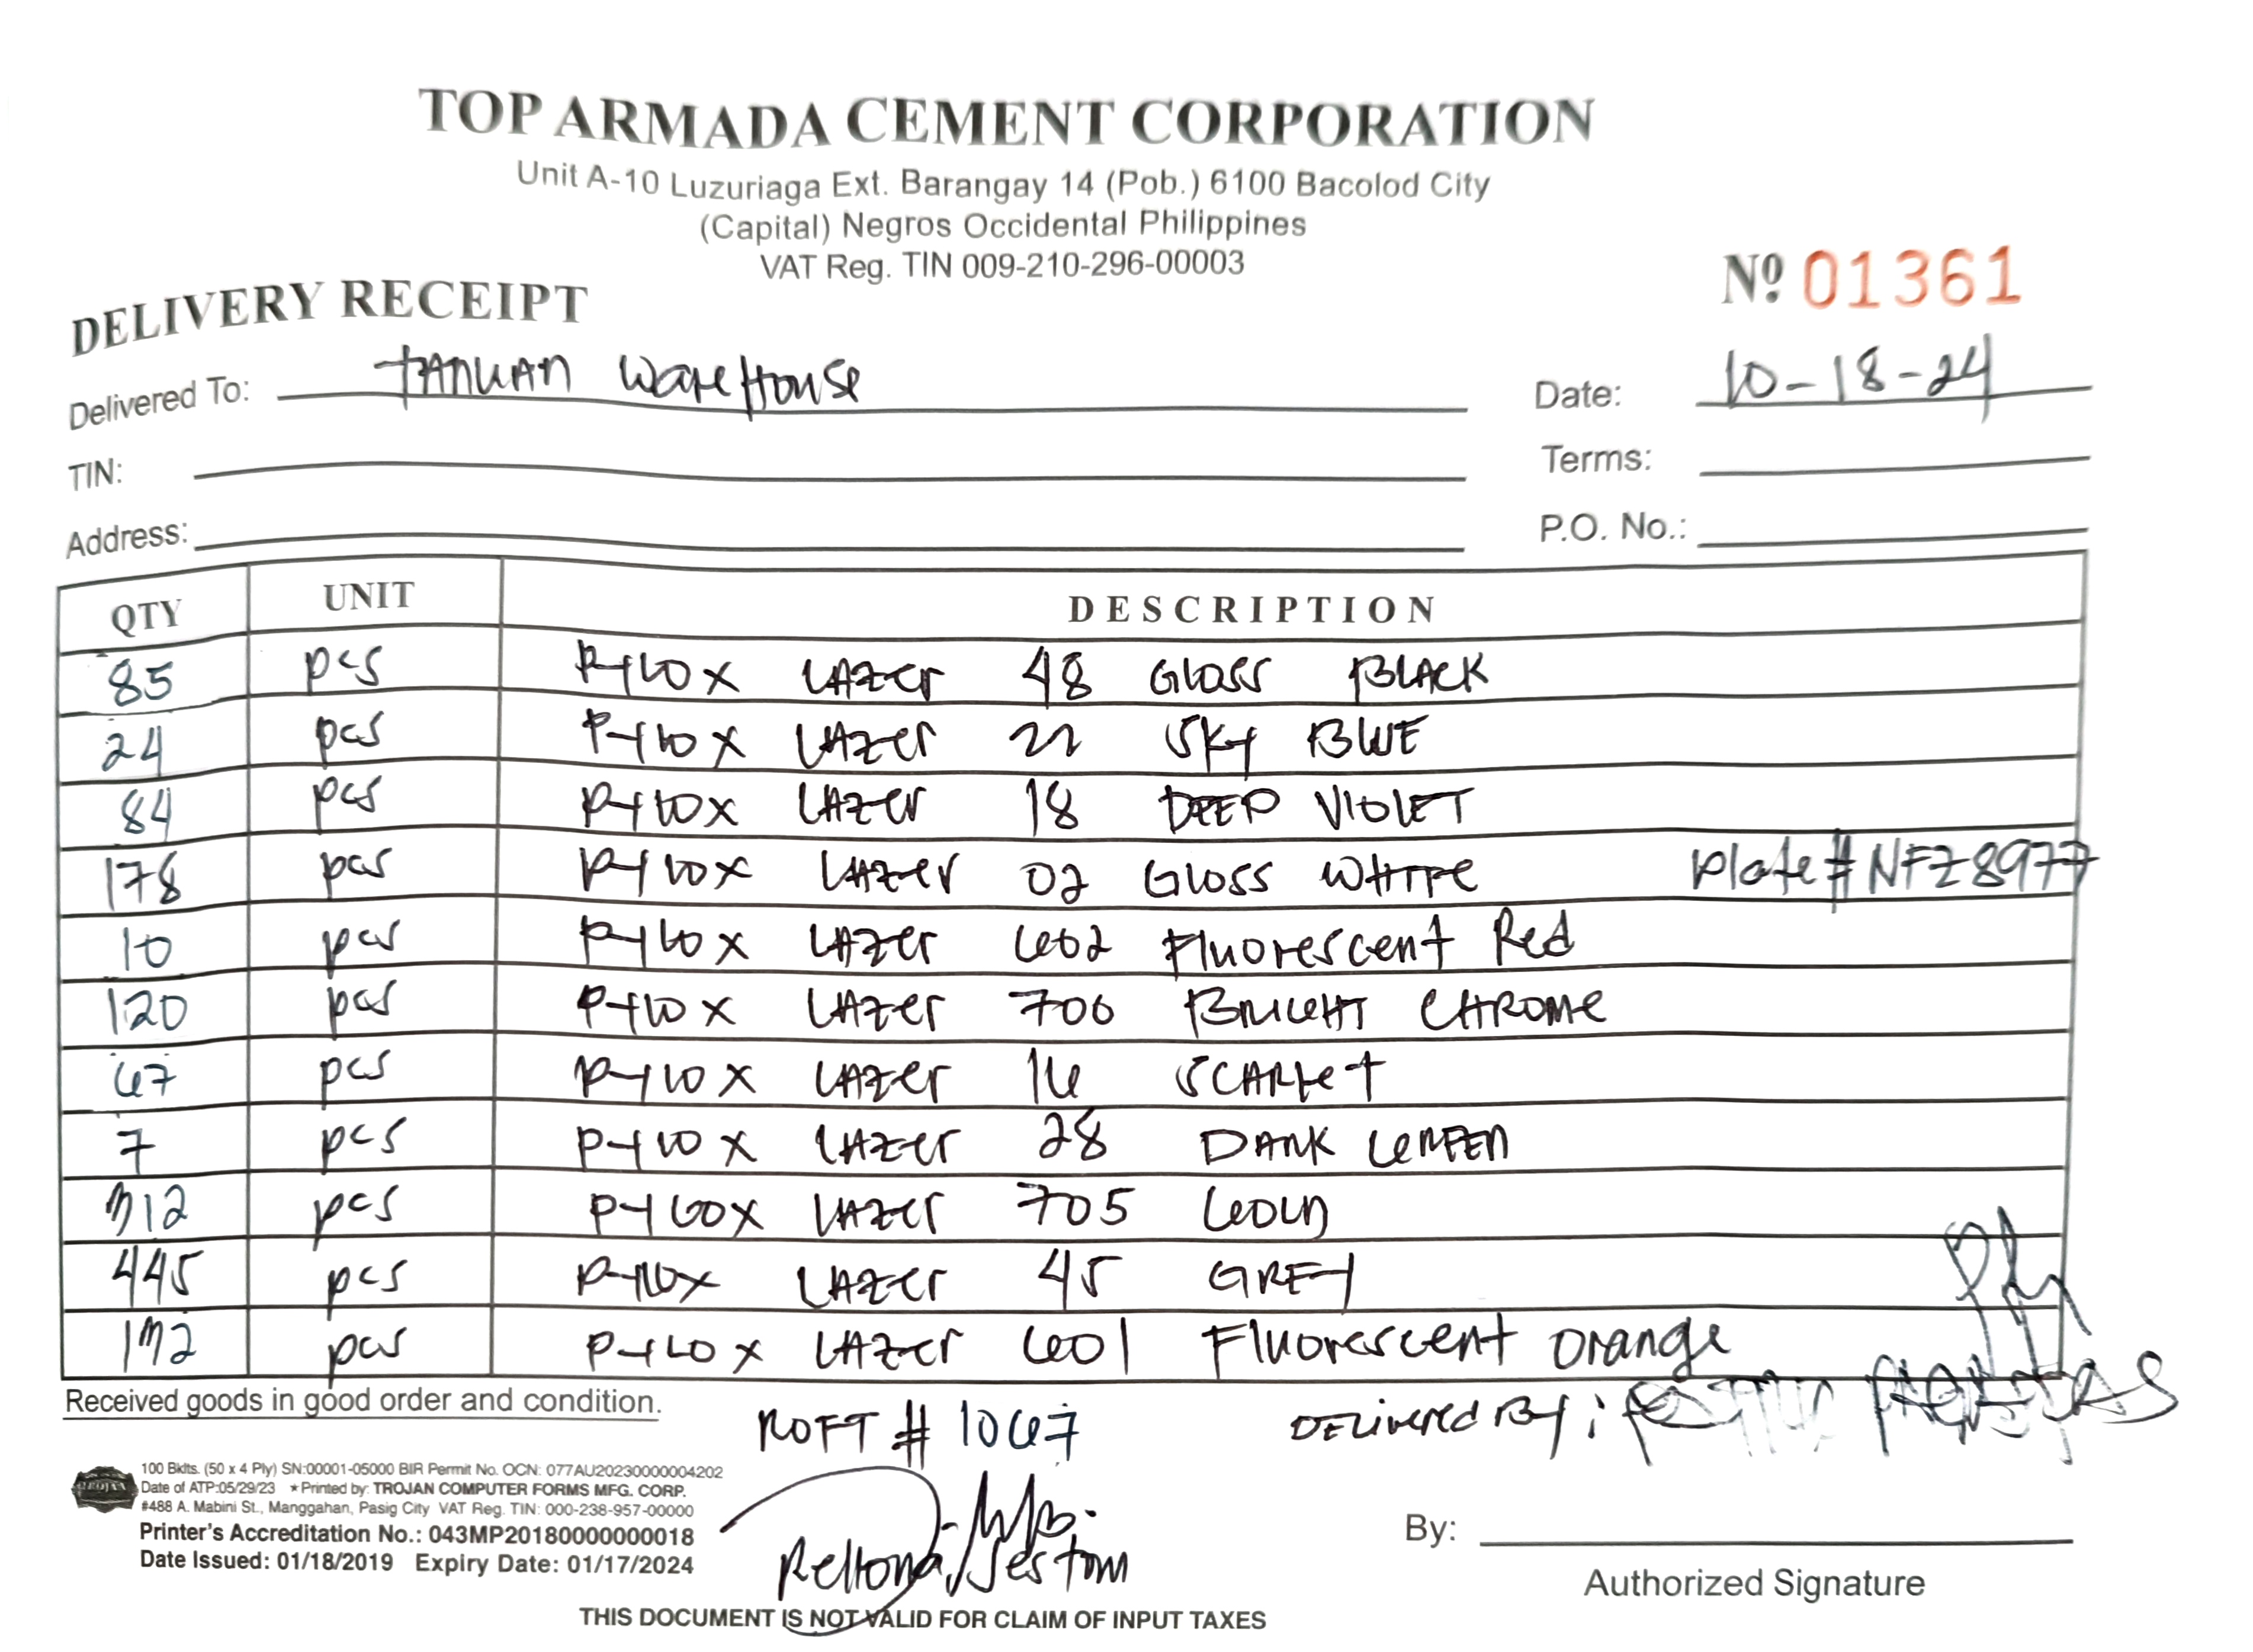 TOP ARMADA CEMENT CORPORATION
Unit A-10 Luzuriaga Ext. Barangay 14 (Pob.) 6100 Bacolod City
(Capital) Negros Occidental Philippines
VAT Reg. TIN 009-210-296-00003
DELIVERY RECEIPT
Nº 01361
Delivered To: TANUAN WareHouse
Date: 10-18-24
TIN:
Terms:
Address:
P.O. No.:
QTY UNIT DESCRIPTION
85 pcs Pylox LAZer 48 Gloss BLACK
24 pcs Pylox LAZer 22 SKY BLUE
84 pcs Pylox LAZer 18 DEEP VIOLET
178 pcs Pylox LAZer 02 GLOSS WHITE Plate # NFZ8977
10 pcs Pylox LAZer 602 Fluorescent Red
120 pcs Pylox LAZer 700 BRIGHT CHROME
67 pcs Pylox LAZer 16 SCARLET
7 pcs Pylox LAZer 28 DARK GREEN
312 pcs Pylox LAZer 705 GOLD
445 pcs Pylox LAZer 45 GREY
132 pcs Pylox LAZer 601 Fluorescent Orange
Received goods in good order and condition.
ROFT # 1067
DELivered By:
100 Bklts. (50 x 4 Ply) SN:00001-05000 BIR Permit No. OCN: 077AU20230000004202
Date of ATP:05/29/23 ★Printed by: TROJAN COMPUTER FORMS MFG. CORP.
#488 A. Mabini St., Manggahan, Pasig City VAT Reg. TIN: 000-238-957-00000
Printer's Accreditation No.: 043MP20180000000018
Date Issued: 01/18/2019 Expiry Date: 01/17/2024
TROJAN
By:
Authorized Signature
THIS DOCUMENT IS NOT VALID FOR CLAIM OF INPUT TAXES